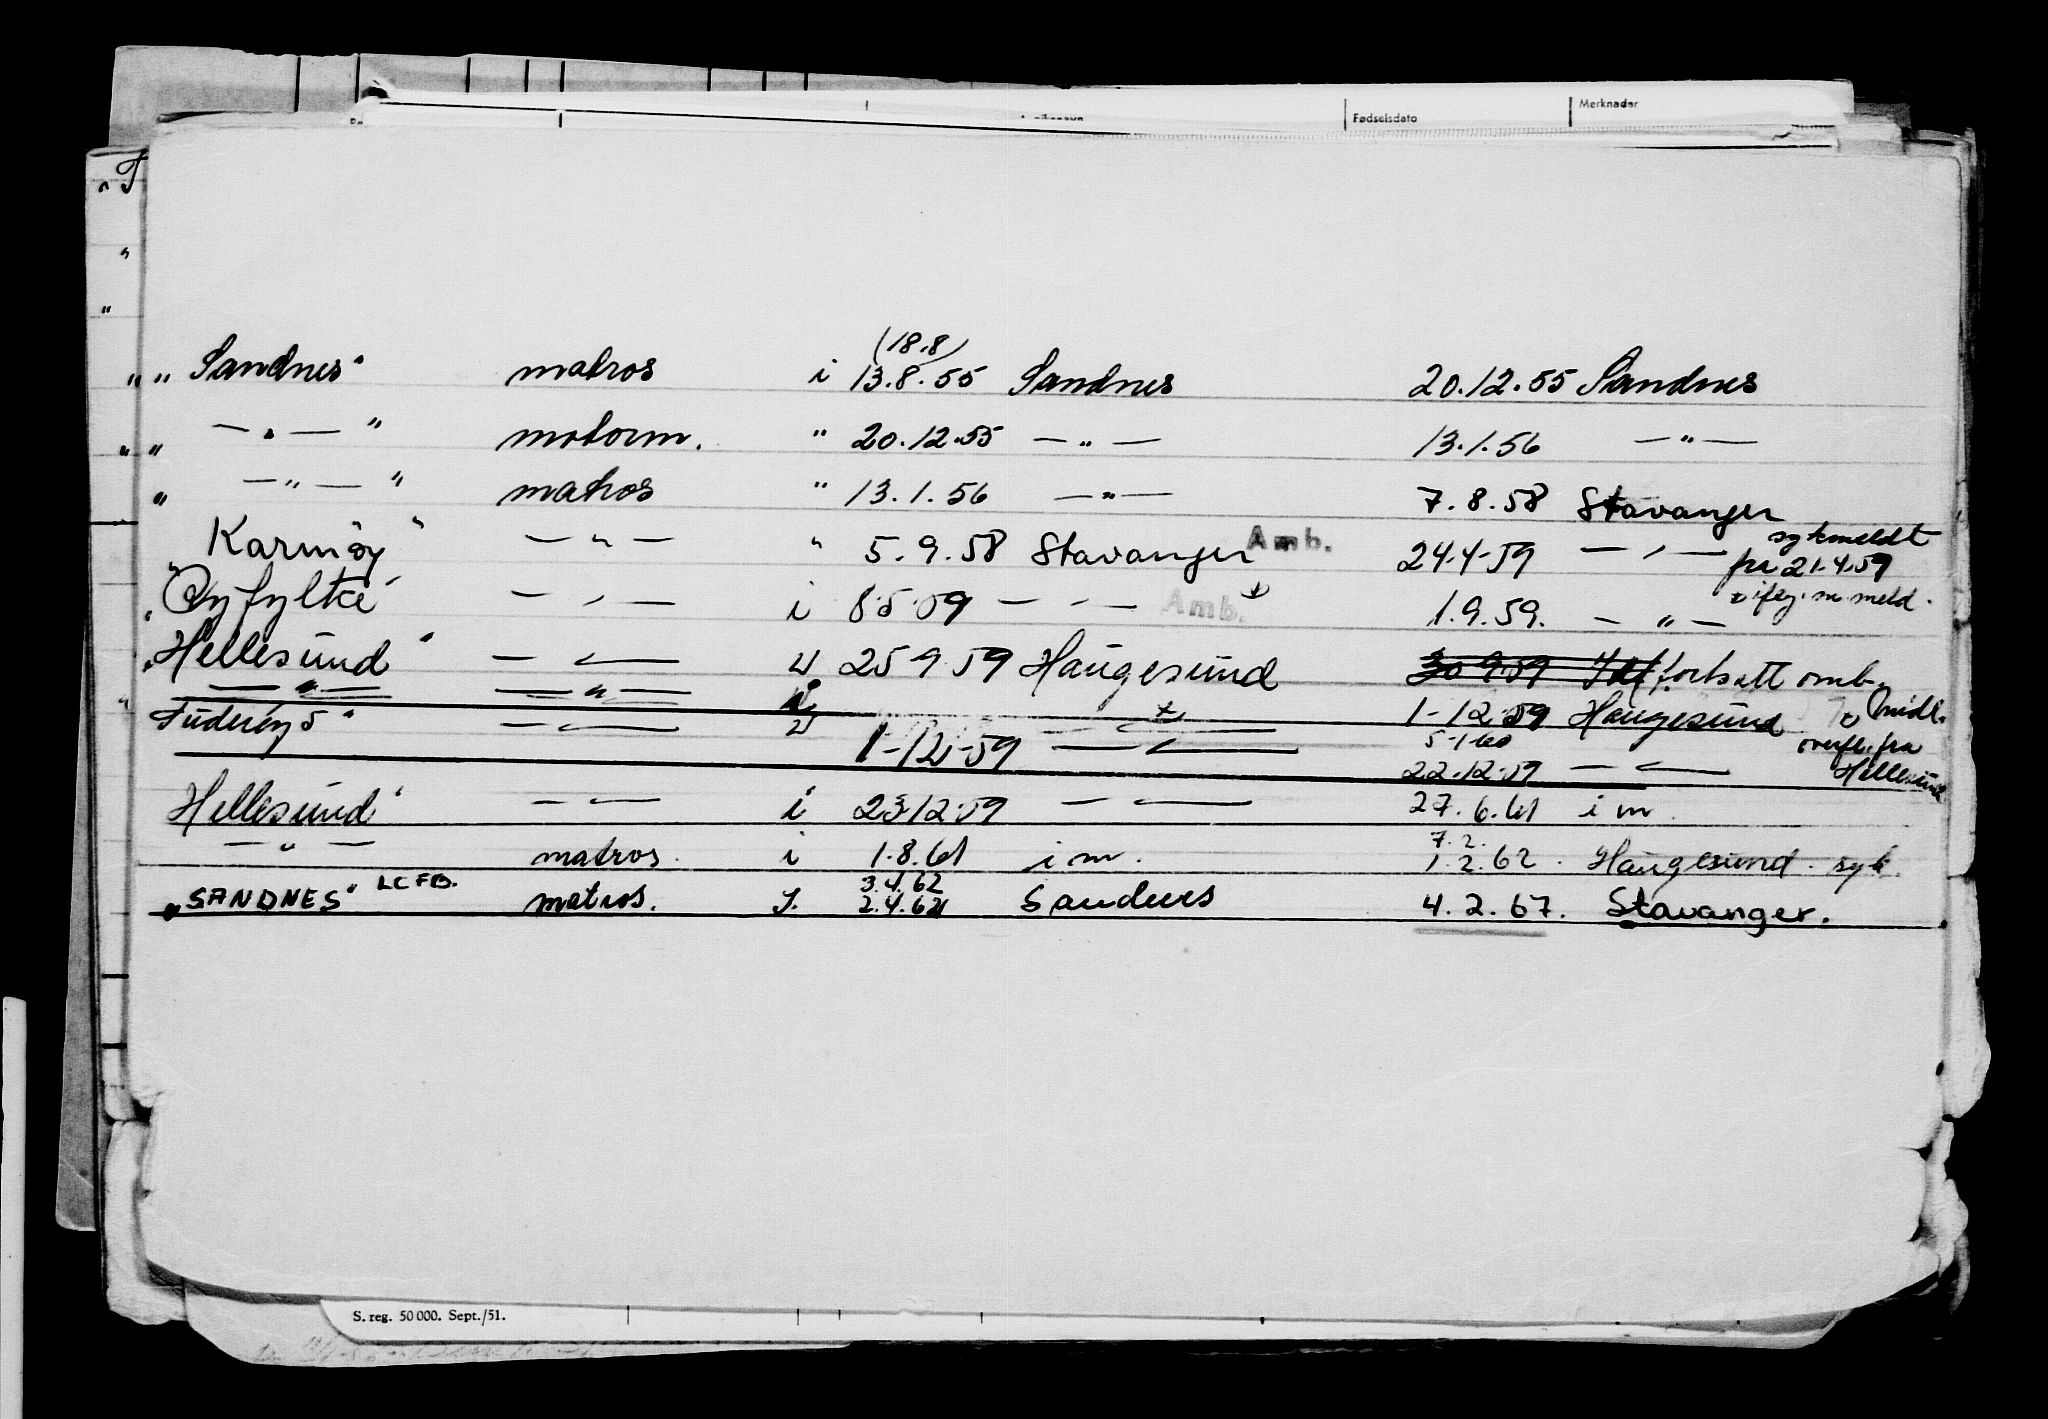 Merknader
Fødselsdato
(18.8)
" " Sandnes" matros i 13.8.55 Sandnes 20.12.55 Sandnes
" " — " — " motorm. " 20.12.55 — " — 13.1.56 — " —
" — " — " matros " 13.1.56 — " — 7.8.58 Stavanger
" Karmøy " — " — " 5.9.58 Stavanger Amb. 24.4-59 — " — sykmeldt
fra 21.4.59
" Ryfylke " — " — i 8.5.59 — " — Amb. 1.9.59. — " — meld.
" Hellesund " — " — 25 9 59 Haugesund 30 9.59 fortsatt omb.
— " — — " — i
" — " — 1-12-59 — " — 1-12 59 Haugesund midl.
5-1-60 overfl. fra
22.12.59 — " — Hellesund
Hellesund " — " — i 23.12.59 — " — 27.6.61 i m
7.2.
— " — matros. i 1.8.61 i m. 1.2.62. Haugesund. syk.
3.4.62
"SANDNES" LCFB. matros. 2.4.62 Sandnes 4.2.67. Stavanger.
S. reg. 50 000. Sept./51.